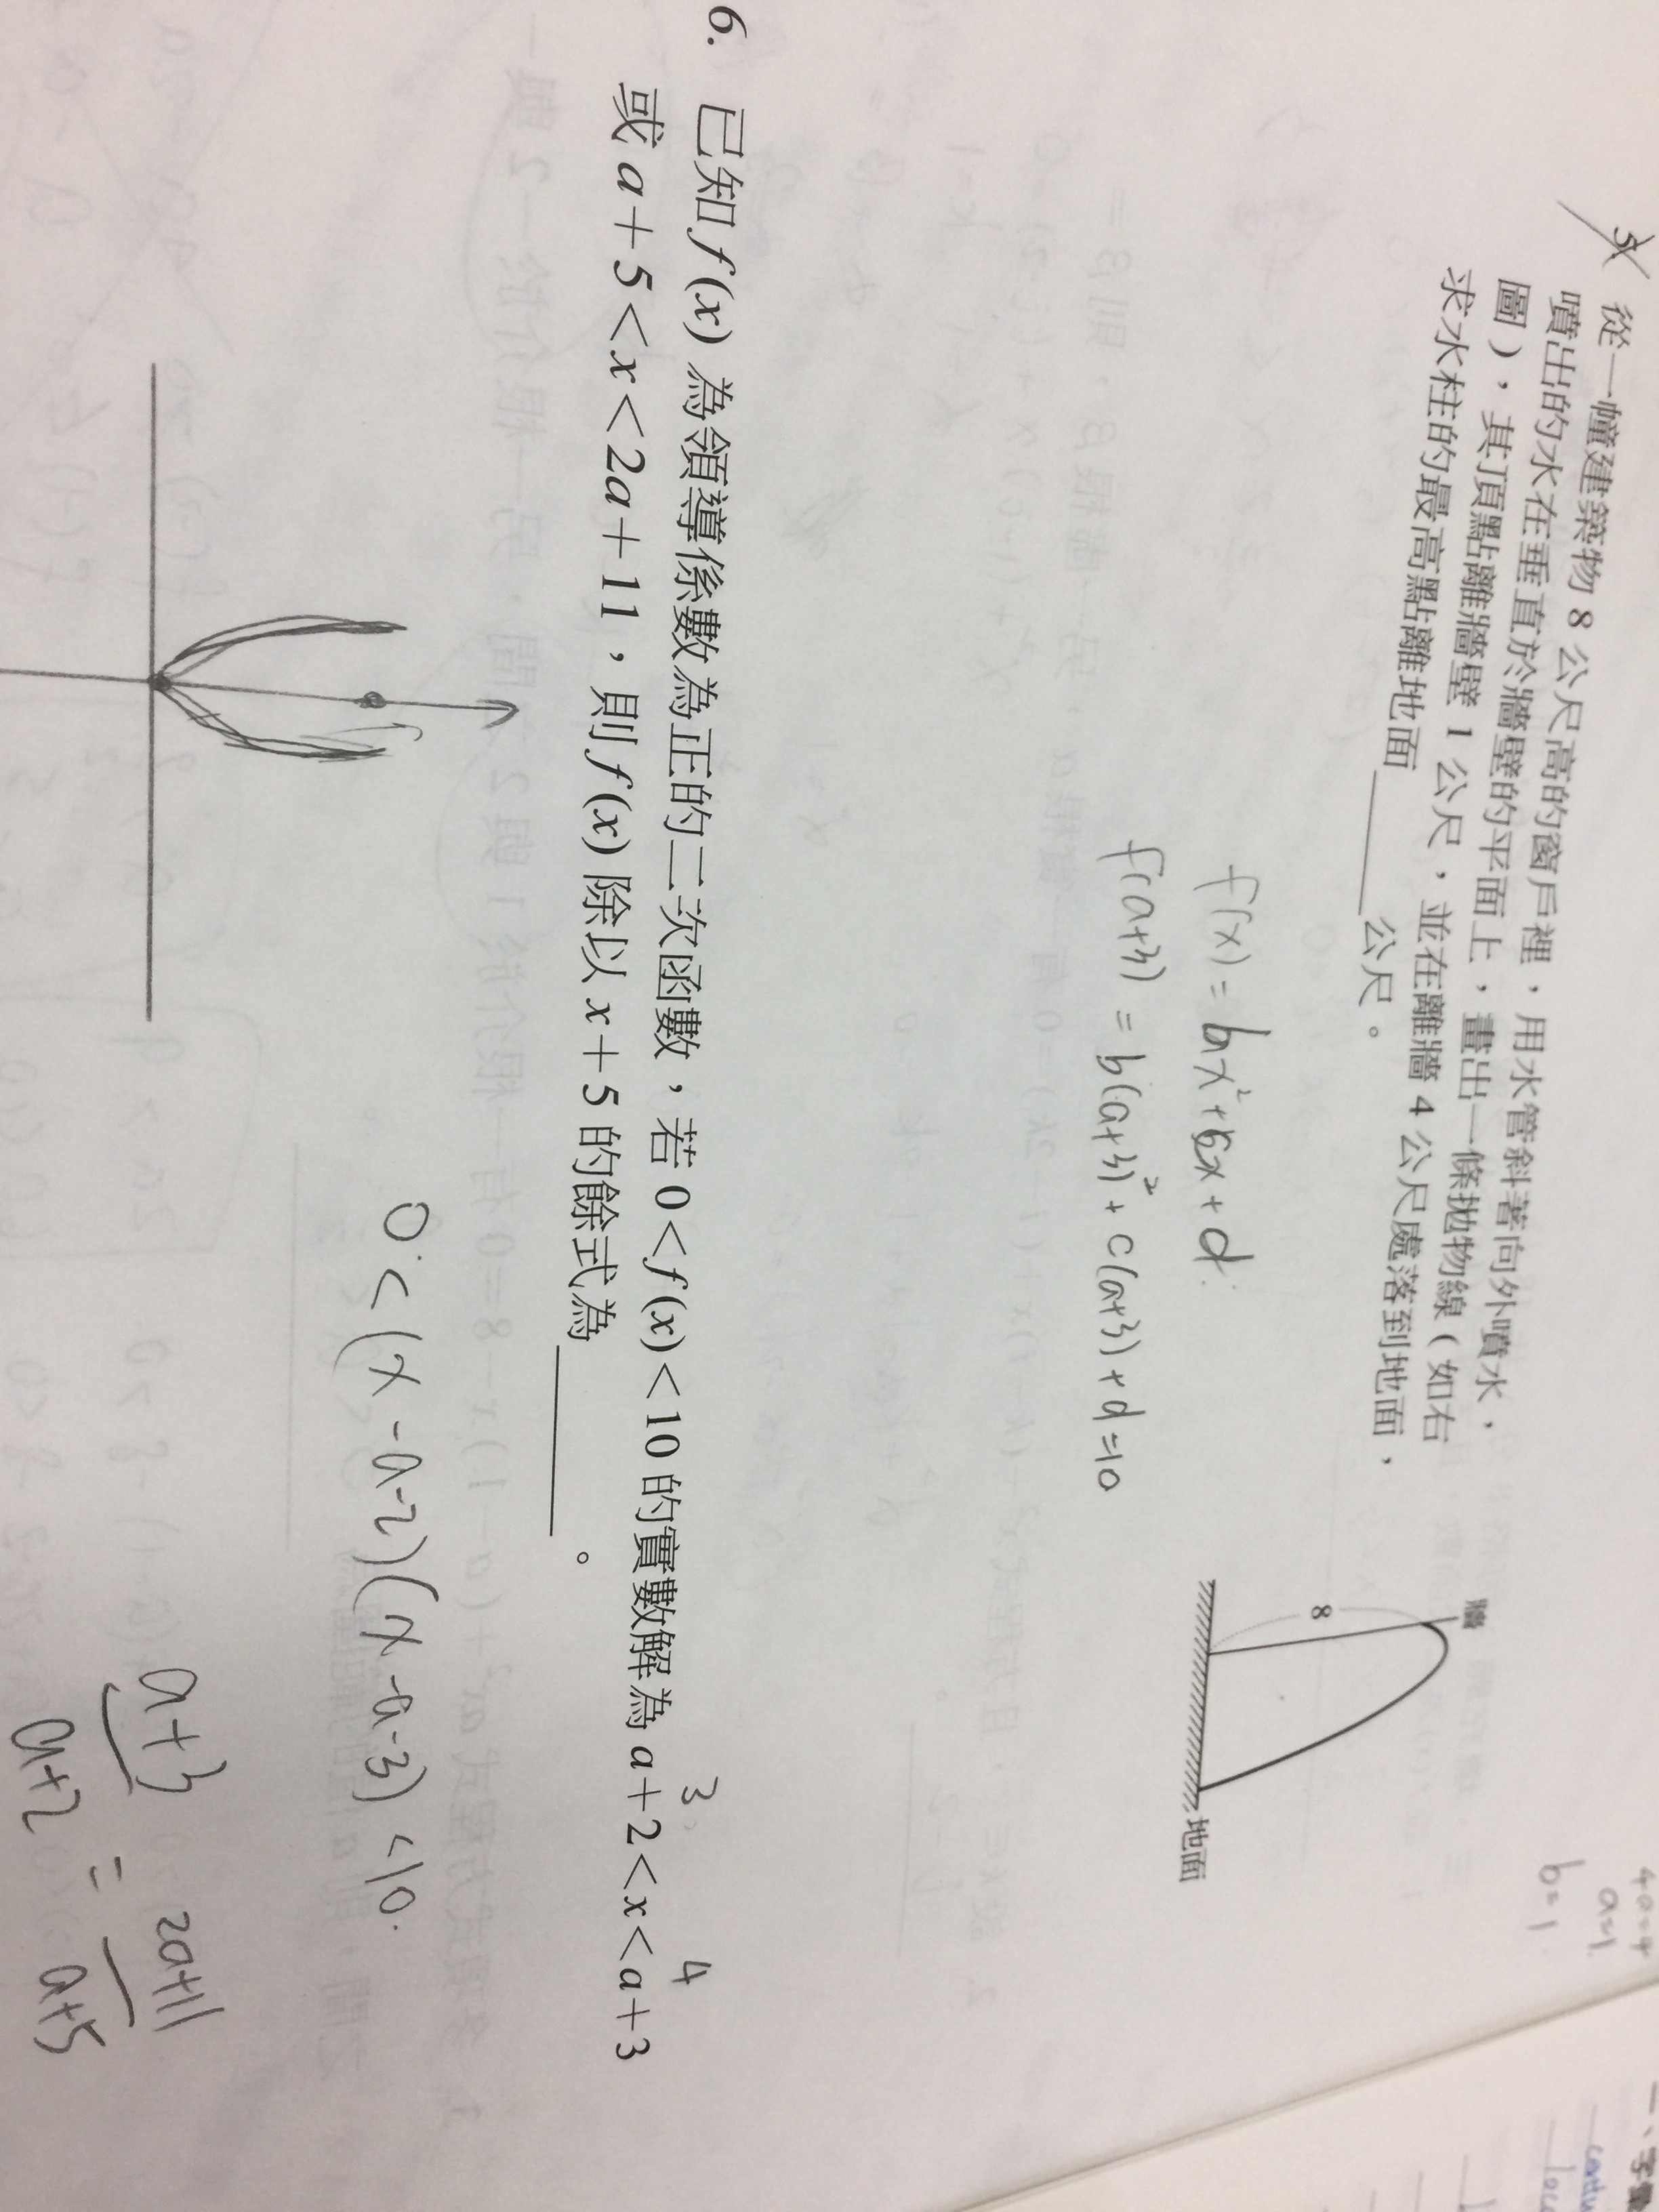 5.
從一幢建築物 8 公尺高的窗戶裡，用水管斜著向外噴水，
噴出的水在垂直於牆壁的平面上，畫出一條拋物線（如右
圖），其頂點離牆壁 1 公尺，並在離牆 4 公尺處落到地面，
求水柱的最高點離地面______公尺。
牆
8
地面
4a=4
a=1
b=1
f(x)=bx²+cx+d
f(a+3)=b(a+3)²+c(a+3)+d=10
3
4
6. 已知 f(x) 為領導係數為正的二次函數，若 0<f(x)<10 的實數解為 a+2<x<a+3
或 a+5<x<2a+11，則 f(x) 除以 x+5 的餘式為______。
0<(x-a-2)(x-a-3)<10.
a+3 2a+11
=
a+2 a+5
一、字彙